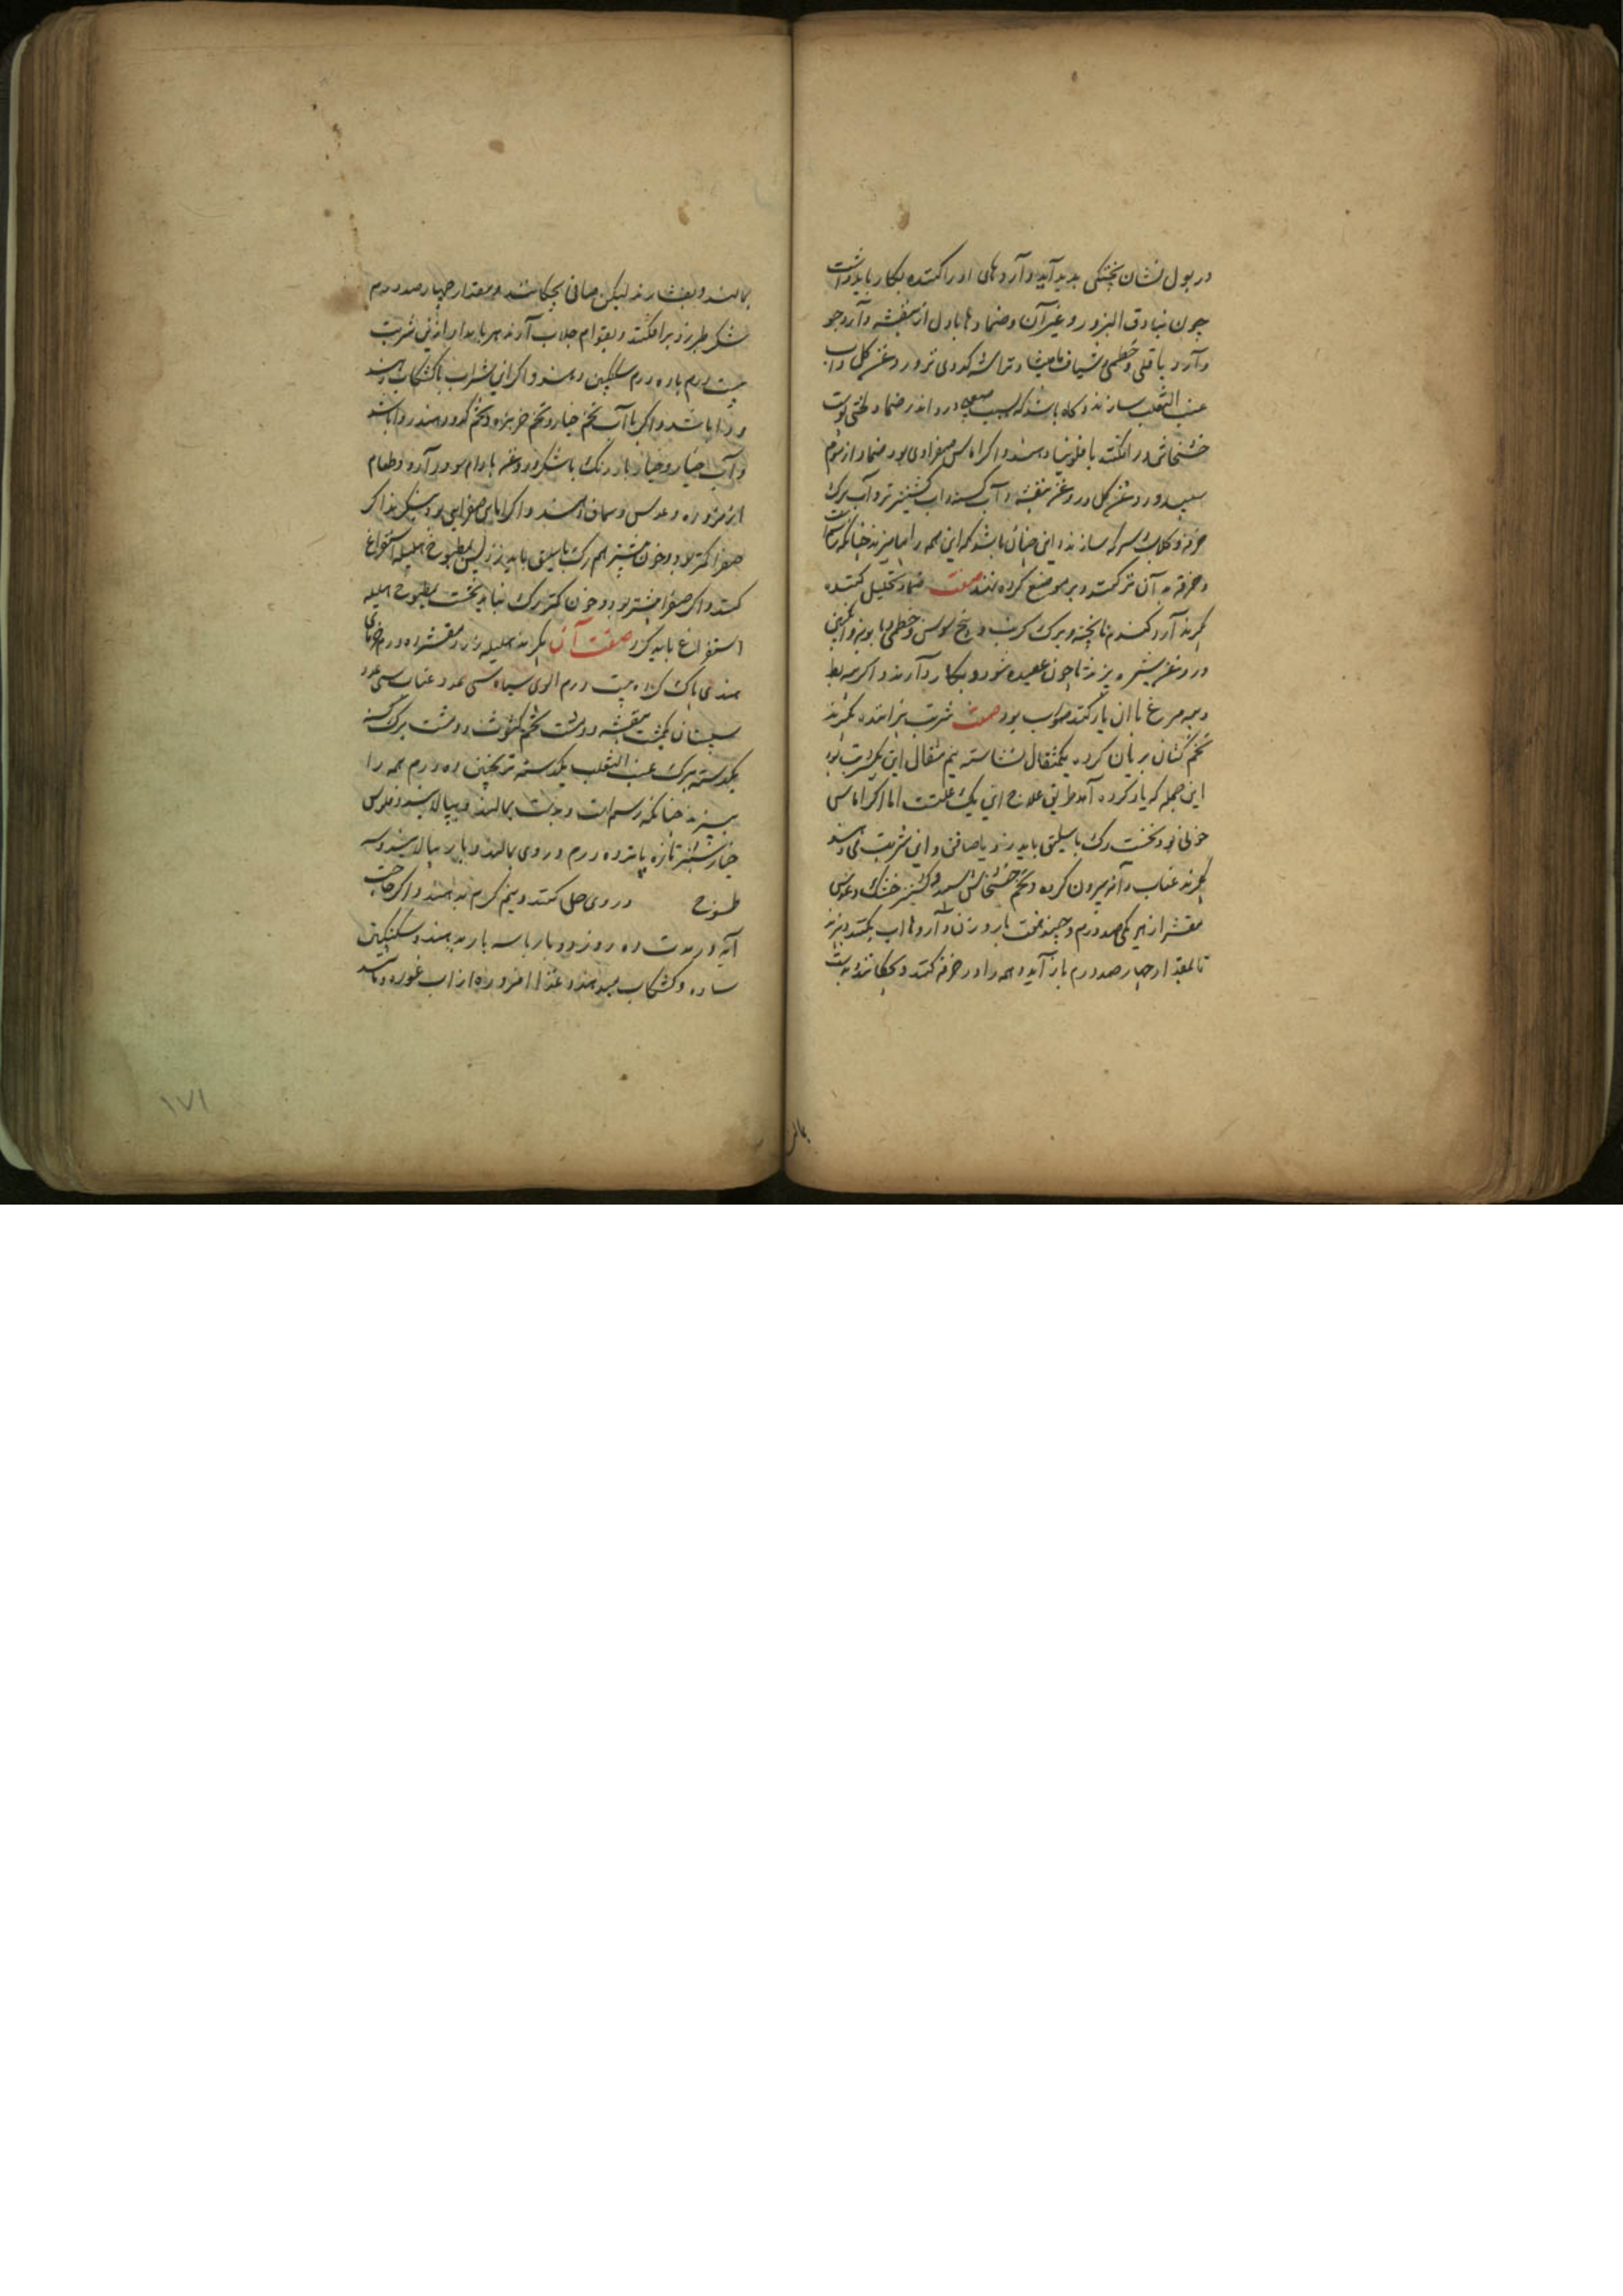 در بول نشان پختگی پدید آید و آرد های ادرار کننده بکار باید داشت
چون بنادق البزور و غیر آن و ضماد ها باول از بنفشه و آرد جو
و آرد باقلی و خطمی و شیاف مامیثا و تراشه کدوی تر و روغن کل و اب
عنب الثعلب سازند و کاه باشد که بسبب صعبی درد اندر ضماد لختی پوست
خشخاش در افکنند یا فلونیا دهند و اکر اماس صفراوی بود ضماد از موم
سپید و روغن کل و روغن بنفشه و آب کسنه و اب کشنیز تر و آب برک
خرفه و کلاب و سرکه سازند و این چنان باشد که این همه را بیامیزند چنانکه
و خرقه به آن تر کنند و بر موضع کرده نهند صفت ضماد تحلیل کننده
بکیرند آرد کندم نا پخته و برک کرنب و بیخ سوس و خطمی و بابونه و
در روغن شیره بپزند تا چون عصیده شود و بکار دارند و اکر پیه بط
و پیه مرغ با ان یار کنند صواب بود صفت شربت پزاننده بکیرند
تخم کتان بریان کرده یکمثقال نشاسته نیم مثقال این یکشربت بود
این جمله که یاد کرده آمد طریق علاج این یک علتست اما اکر اماس
خونی بود نخست رک باسلیق باید زد یا صافن و این شربت می دهند
بکیرند عناب دانه بیرون کرده و تخم خشخاش سپید و کشنیز خشک و عدس
مقشر از هر یکی صد درم و چند هفت بار وزن دارو ها اب بکنند و بپزند
تا بمقدار چهار صد درم باز آید و همه را در خرقه کنند و بچکانند و بدست
بمالند و بفشارند لیکن صافی بچکانند و بمقدار چهار صد درم
شکر طبرزد بر افکنند و بقوام جلاب آرند هر بامداد از این شربت
بیست درم با ده درم سکنکبین دهند و اکر این شراب با کشکاب دهند
روا باشد و اکر با آب تخم خیار و تخم خربزه و تخم کدو دهند روا باشد
و آب خیار و خیار بادرنک با شکر و روغن بادام سود دارد و طعام
از مزوره و عدس و سماق دهند و اکر اماس صفرایی بود بنکرند اکر
صفرا کمتر بود و خون بیشتر هم رک باسلیق باید زد پس بمطبوخ هلیله استفراغ
کنند و اکر صفرا بیشتر بود و خون کمتر رک نباید نخست بمطبوخ هلیله
استفراغ باید کرد صفت آن بکیرند هلیله زرد مقشر ده درم خرمای
هندی پاک کرده بیست درم الوی سیاه سی عدد عناب سی عدد
سپستان یکمشت بنفشه دو مشت تخم کشوث دو مشت برک کسنه
یکدسته برک عنب الثعلب یکدسته ترنجبین ده درم همه را
بپزند چنانکه رسم است و بدست بمالند و بپالایند و فلوس
خیارشنبر تازه پانزده درم در وی بمالند و باز بپالایند و سه
طسوج در وی حل کنند و نیم کرم بدهند و اکر حاجت
آید در مدت ده روز دو بار یا سه بار بدهند و سکنکبین
ساده و کشکاب میدهند و غذا مزوره از اب غوره و
بمالند
۱۷۱